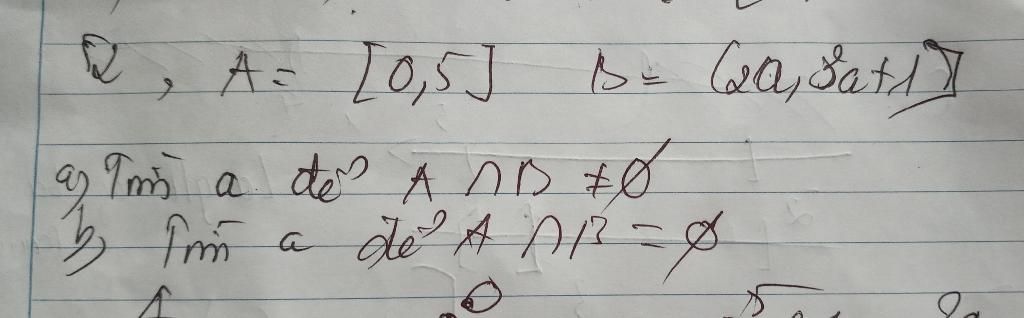 2, A = [0,5] B = (2a, 3a+1]
a) Tìm a để A ∩ B ≠ ∅
b) Tìm a để A ∩ B = ∅